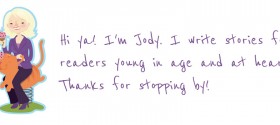 Hi ya! I'm Jody. I write stories f
readers young in age and at hear
Thanks for stopping by!